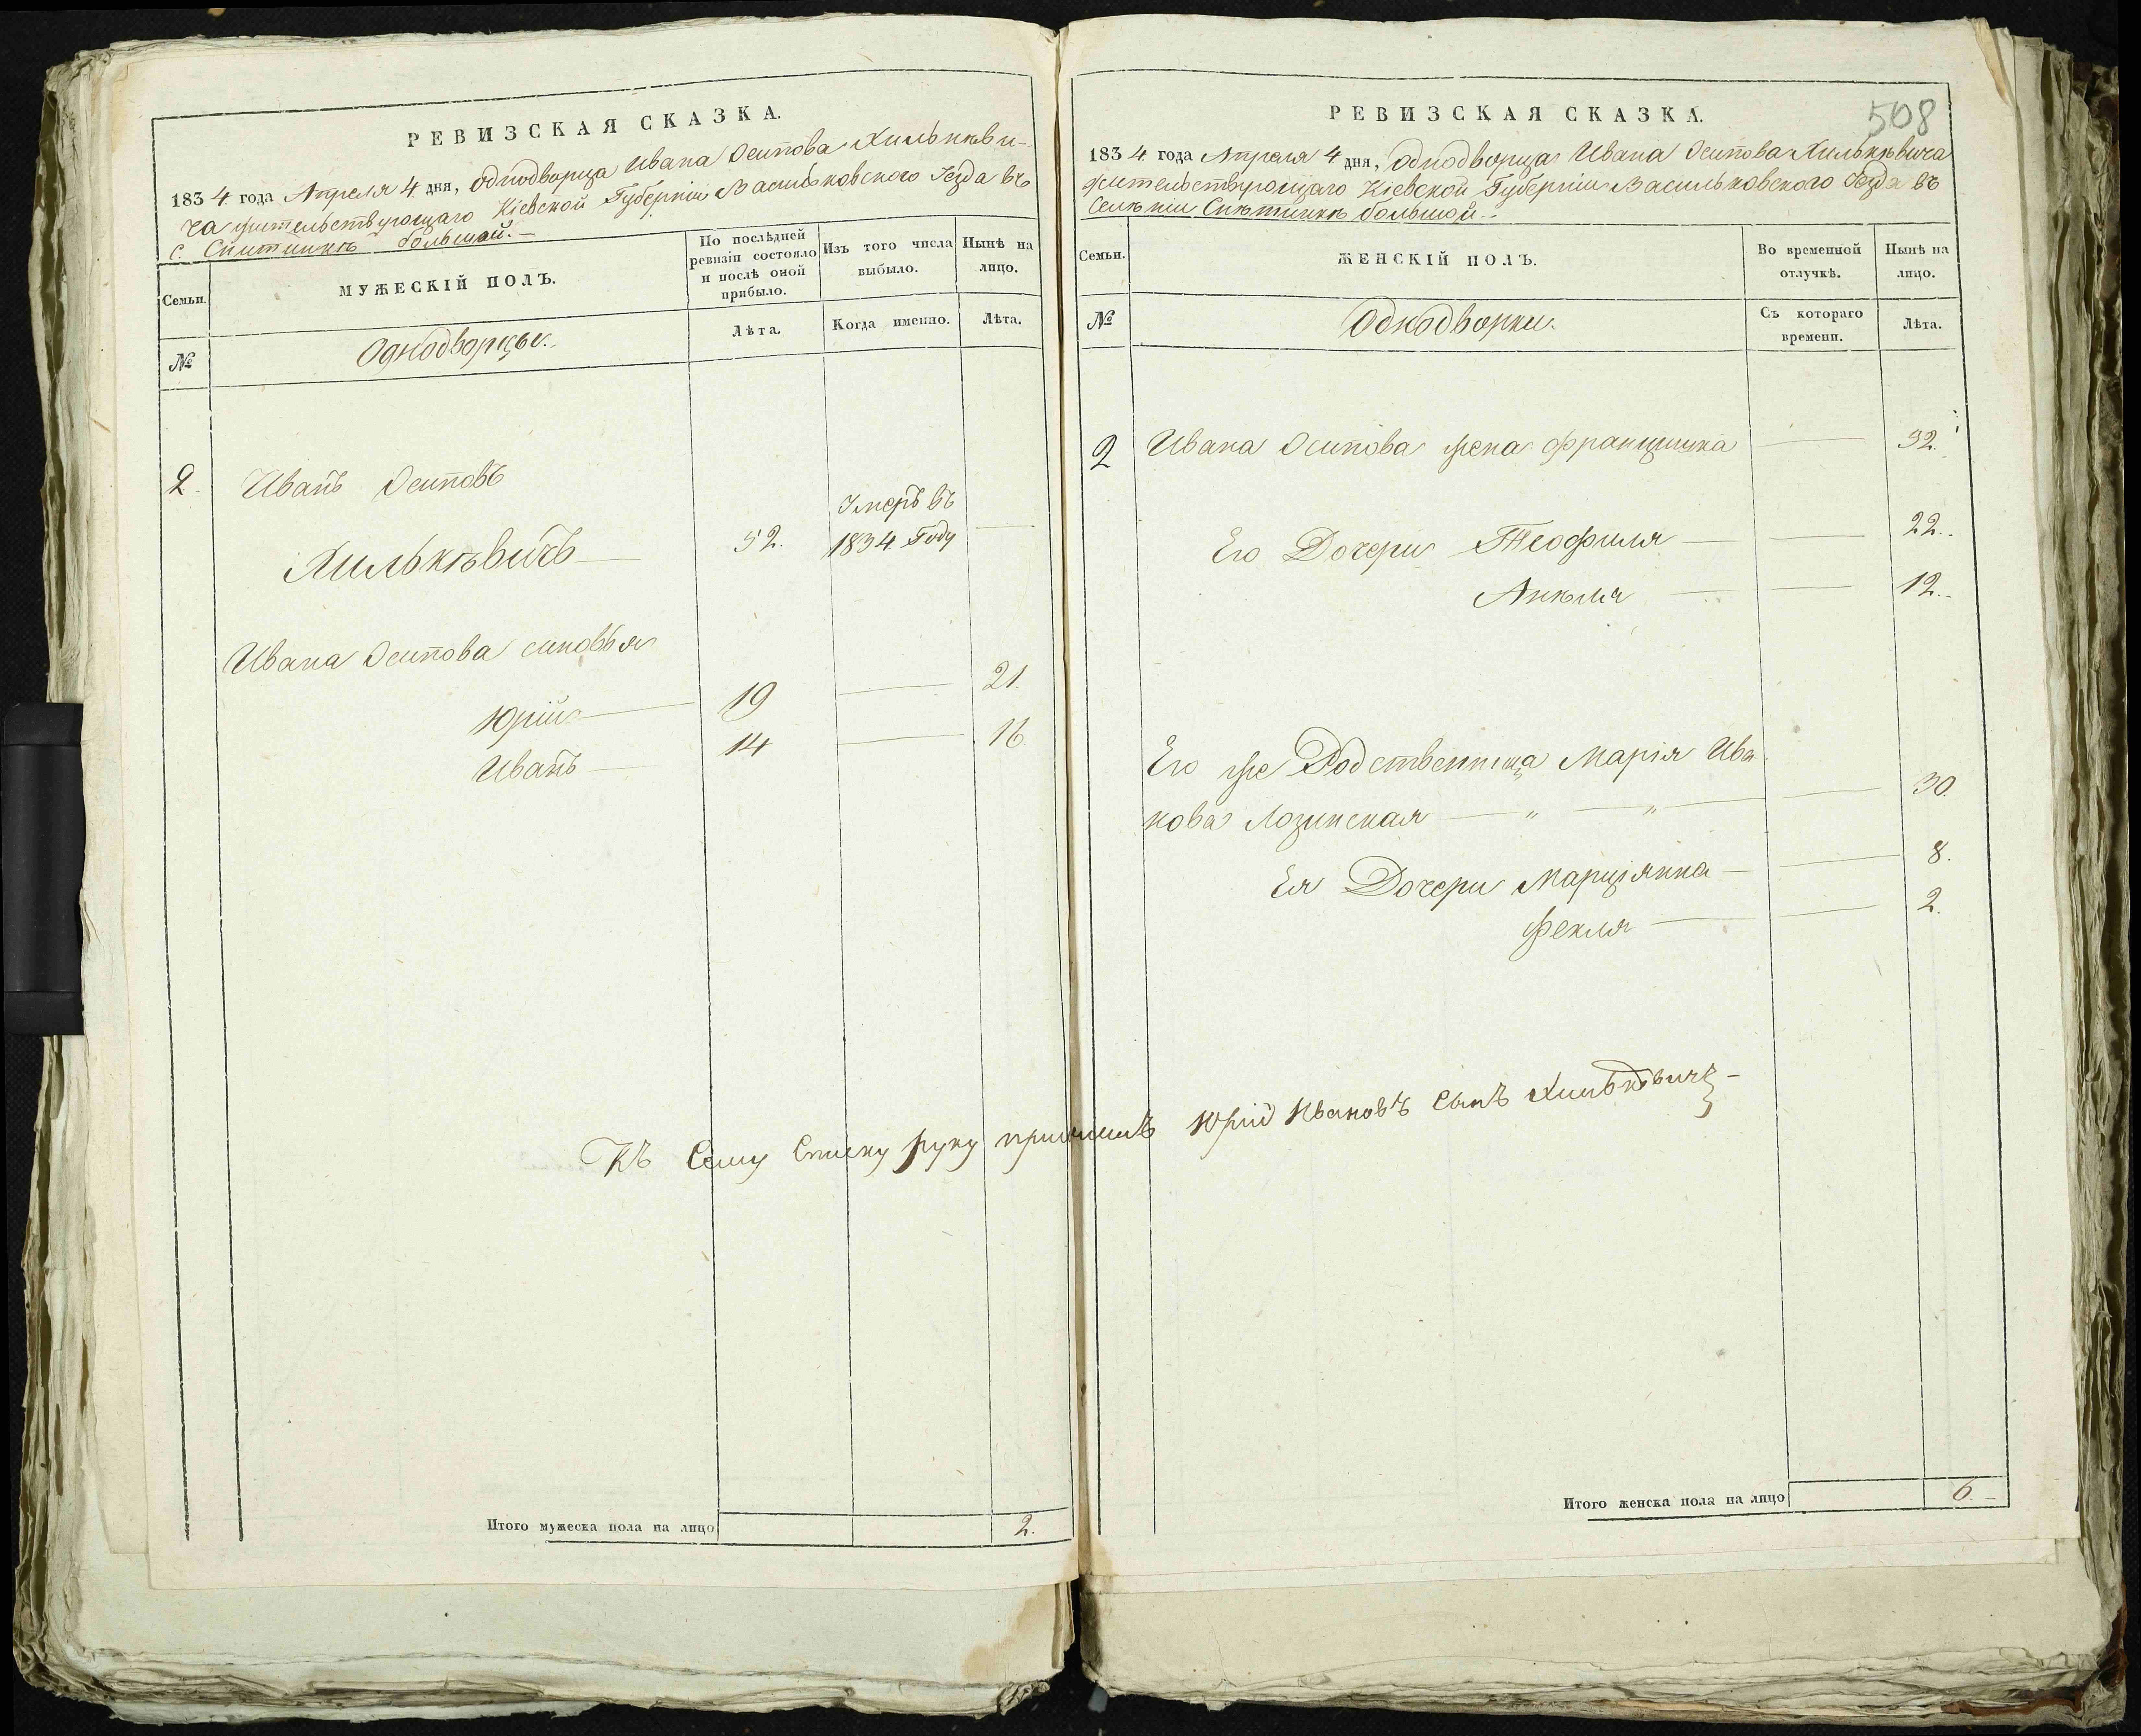 РЕВИЗСКАЯ СКАЗКА.
1834 года Апреля 4 дня, однодворца Ивана Осипова Хилькѣви-
ча жительствующаго Кіевской Губерніи Васильковского Уезда въ
С. Снитинкѣ большой.
Семьи.
МУЖЕСКІЙ ПОЛЪ.
По послѣдней ревизіи состояло и послѣ оной прибыло.
Изъ того числа выбыло.
Нынѣ на лицо.
№
Однодворцы.
Лѣта.
Когда именно.
Лѣта.
2. Иванъ Осиповъ
Хилькѣвичъ — 52. Умеръ въ 1834 Году —
Ивана Осипова сыновья
Юрій — 19 — 21.
Иванъ — 14 — 16
Итого мужеска пола на лицо 2.
508
РЕВИЗСКАЯ СКАЗКА.
1834 года Апреля 4 дня, однодворца Ивана Осипова Хилькѣвича
жительствующаго Кіевской Губерніи Васильковского Уезда въ
Селѣніи Снѣтинкѣ большой.
Семьи.
ЖЕНСКІЙ ПОЛЪ.
Во временной отлучкѣ.
Нынѣ на лицо.
№
Однодворки.
Съ котораго времени.
Лѣта.
2 Ивана Осипова жена Францишка —
Его Дочери Теофиля — — 22.
Анѣля — — 12.
Его же Родственница Марія Ива
нова Лозинская — " — " — — 30.
Ея Дочери Марціянна — — 8.
Фекля — — 2.
Къ Сему Списку руку приложилъ Юрій Ивановъ Сынъ Хилькѣвичъ —
Итого женска пола на лицо 6.